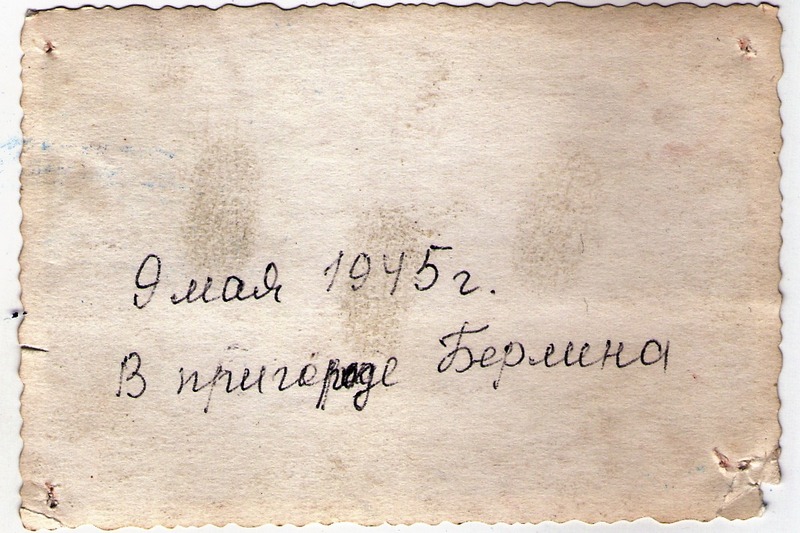 9 мая 1945 г.
В пригороде Берлина